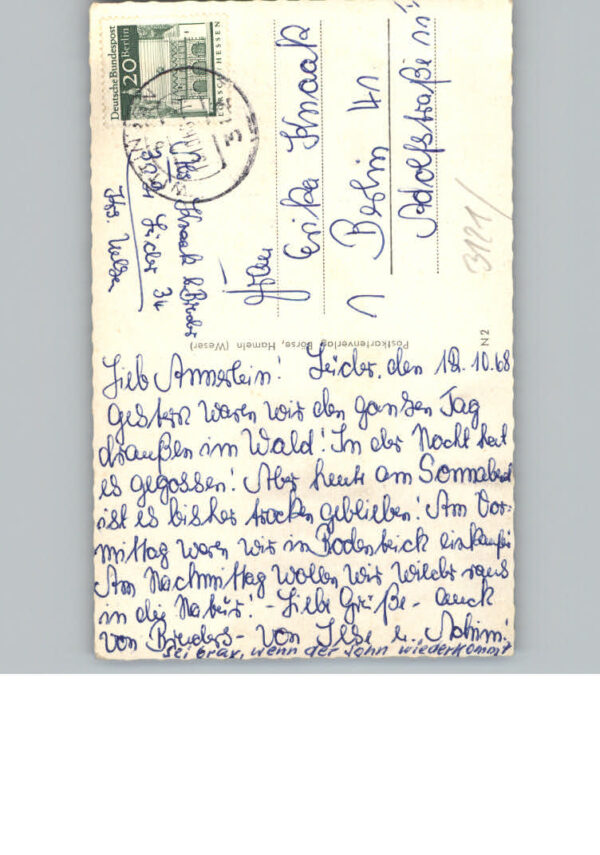 Deutsche Bundespost
Berlin
20
LORSCH/HESSEN
Knaak b. Bruder
34
Krs. Uelzen
Erika Knaak
1 Berlin 41
Adolfstraße
3121/
N 2
Postkartenverlag Börse, Hameln (Weser)
Lieb Annerlein! den 12.10.68
Gestern waren wir den ganzen Tag
draußen im Wald! In der Nacht hat
es gegossen! Aber heute am Sonnabend
ist es bisher trocken geblieben! Am Vor-
mittag waren wir in Bodenteich einkaufen
Am Nachmittag wollen wir wieder raus
in die Natur! - Liebe Grüße - auch
von Bruders - von Ilse u. Achim!
sei brav, wenn der John wiederkommt